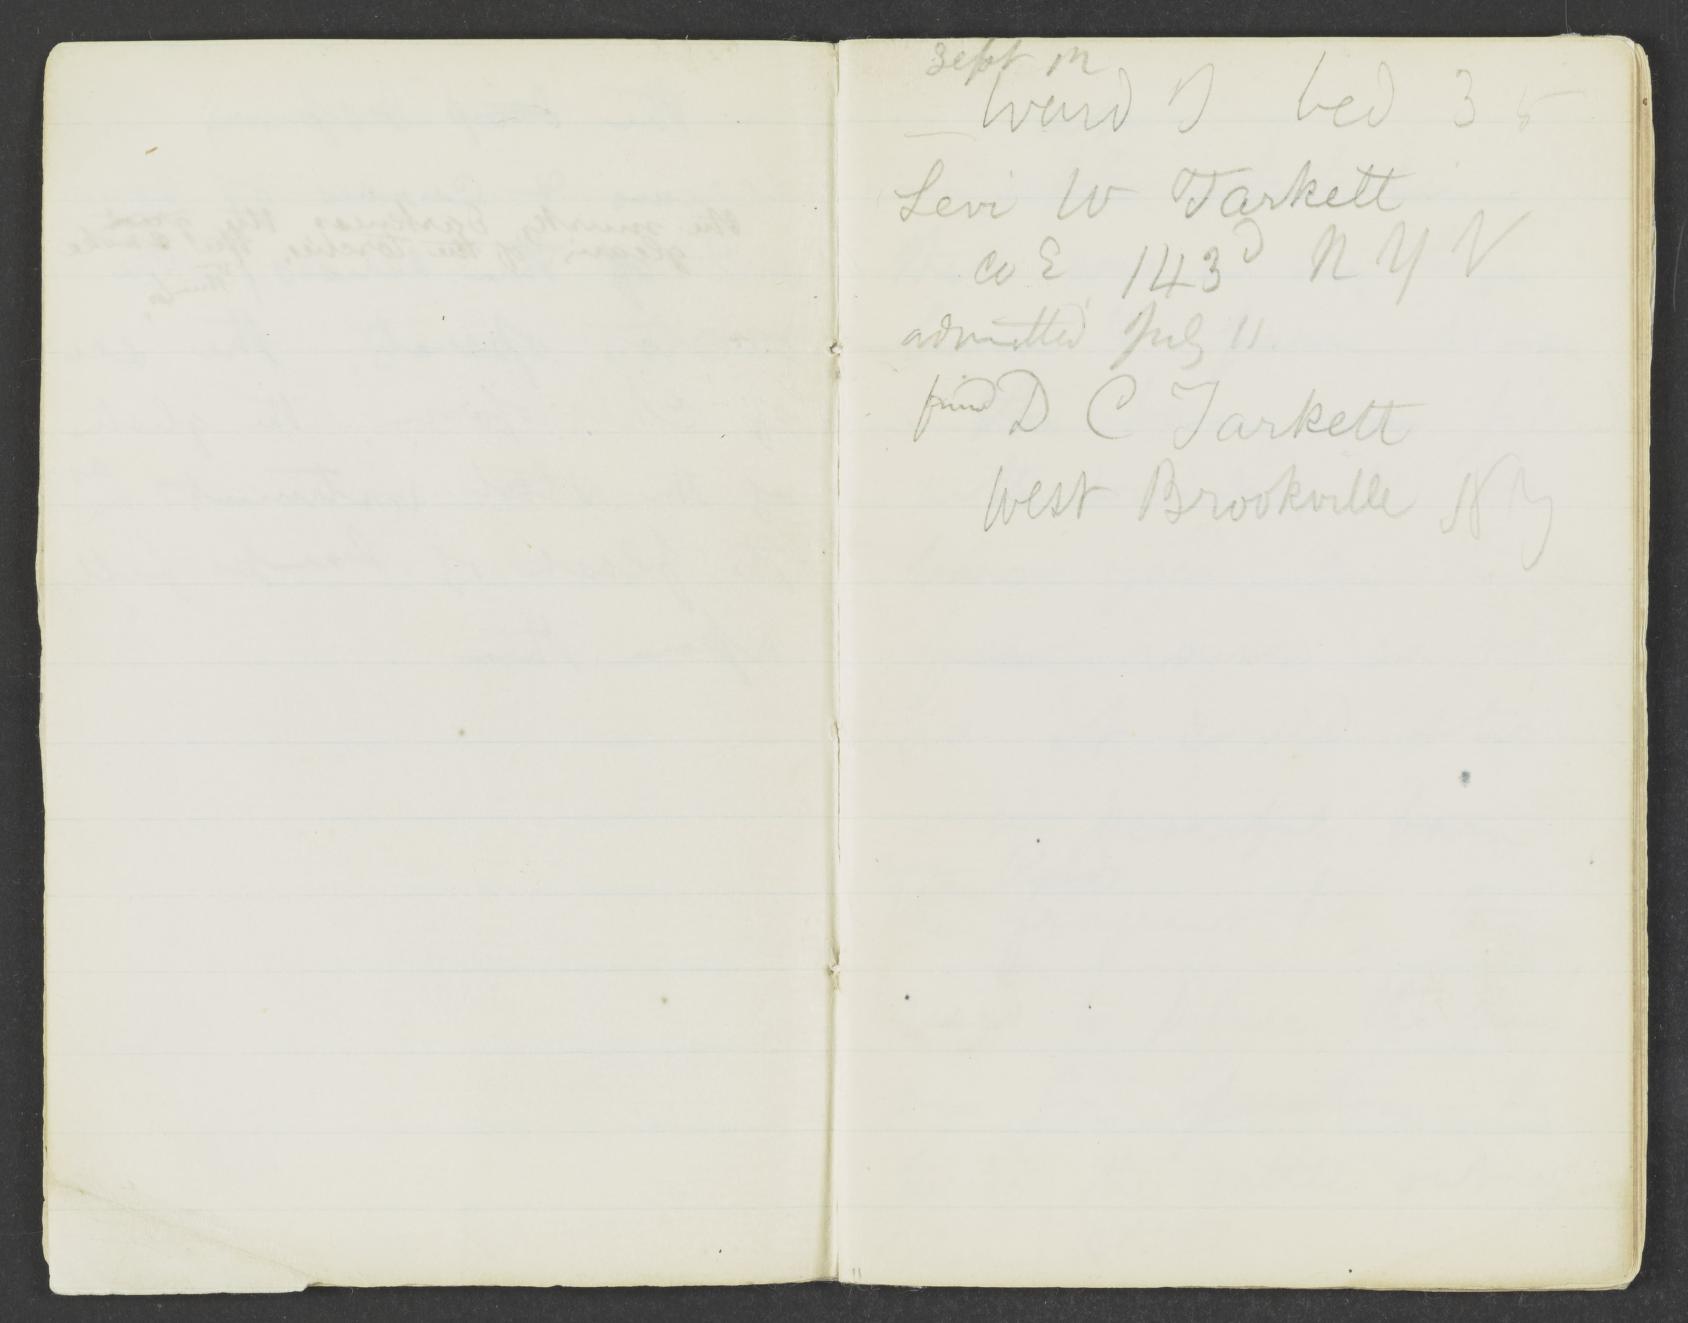 Sept
Ward bed 35
Levi W Tarkett
co E 143d N Y V
admitted July 11
D C Tarkett
West Brookville N Y